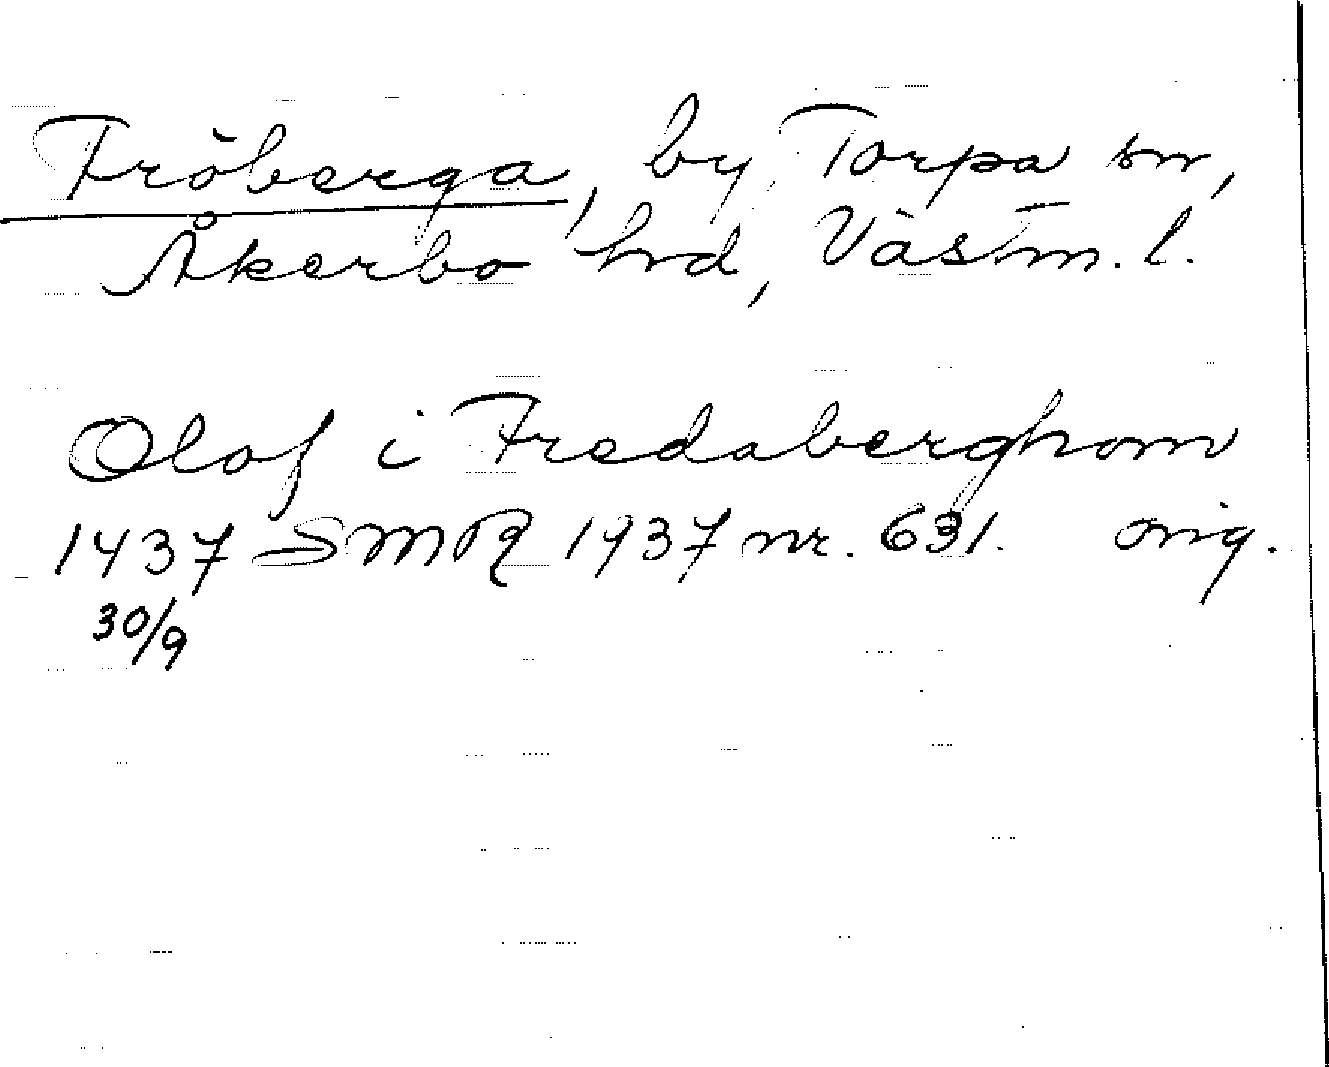 Fröberga, by, Torpa sn,
Åkerbo hrd, Västm. l.
Olof i Fredaberghom
1437 SMR 1937 nr. 631. orig.
30/9